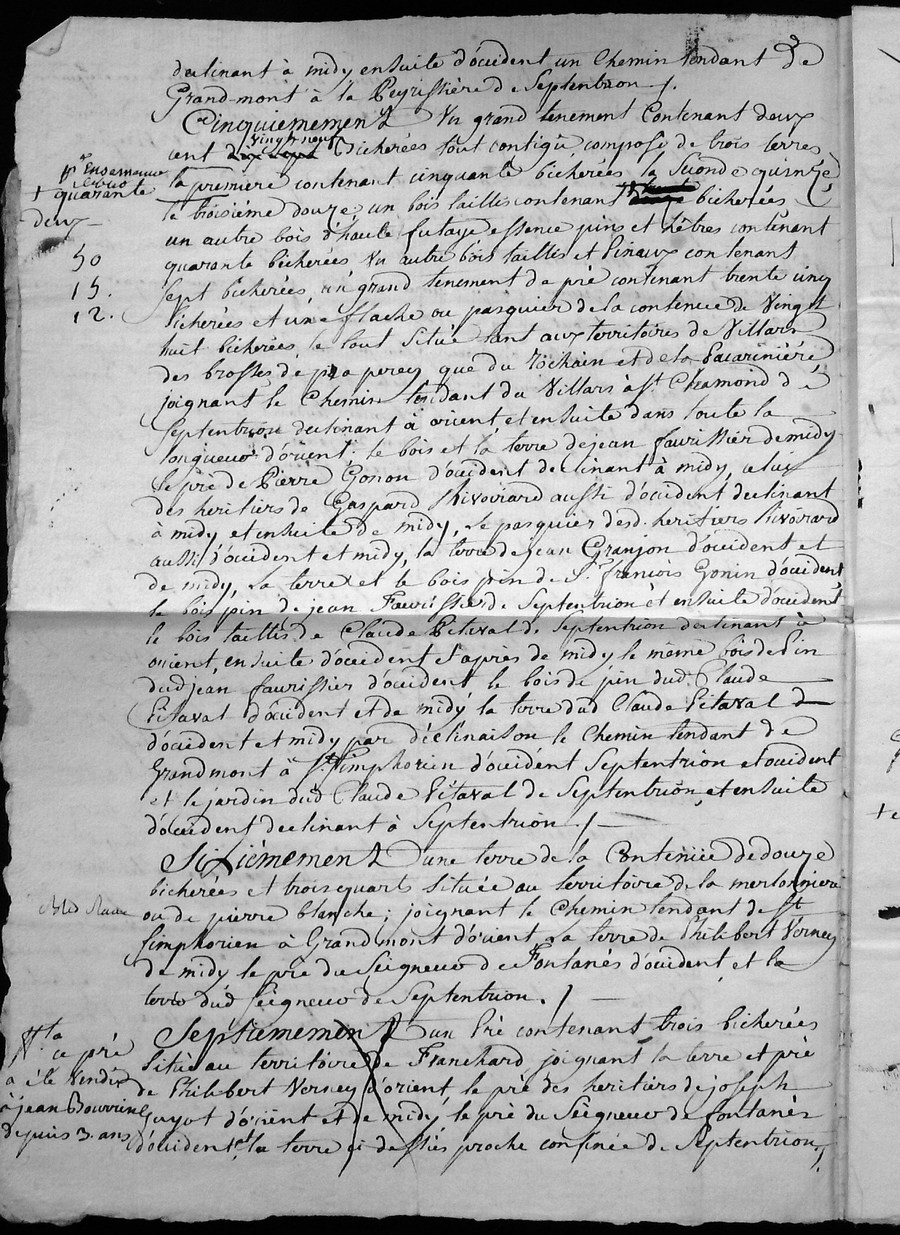 3
declinant à midy ensuite d'occident un Chemin tendant de
Grand-mont à la Peyrissière de Septentrion /.
Cinquiemement Un grand tenement Contenant deux
vingt neuf
cent bicherées tout contigu composé de trois terres
la premiere contenant cinquante bicherées la Seconde quinze
le troisiéme douze un bois taillis contenant bicherées
un autre bois d'haute futaye essence pins et hêtres contenant
quarante bicherées Un autre bois taillis et Pinaux contenant
sept bicherées, un grand tenement de pré contenant trente cinq
bicherées et une flache ou pasquier de la contenue de Vingt
huit bicherées, le tout Située tant aux territoires de Villars
des brosses de perey que du Rochain et de la Pacarinière
joignant le Chemin tendant du Villars à St Chamond de
Septentrion declinant à orient, et ensuite dans toute la
longueur d'orient. le bois et la terre de jean faurissier de midy
le pré de Pierre Gonon d'occident declinant à midy, celuy
des heritiers de Gaspard Rivoirard aussi d'occident declinant
à midy et ensuite de midy, Le pasquier desd. heritiers Rivoirard
aussi d'occident et midy, la terre de jean Granjon d'occident et
de midy, La terre et le bois pin de Sr. francois Gonin d'occident
le bois pin de jean Faurissier de Septentrion et ensuite d'occident
le bois taillis de Claude Pitaval de Septentrion declinant à
orient, ensuite d'occident et après de midy le meme bois de Pin
dud jean faurissier d'occident le bois de pin dud. Claude
Pitaval d'occident et de midy la terre dud Claude Pitaval
d'occident et midy par déclinaison le Chemin tendant de
Grandmont à St. Simphorien d'occident Septentrion et occident
et le jardin dud Claude Pitaval de Septentrion, et ensuite
d'occident declinant à Septentrion. /
Sixiémement D'une terre de la Contenüe de douze
bicherées et trois quarts située au territoire de la merlonniere
ou de pierre blanche; joignant le Chemin tendant de St
Simphorien à Grandmont d'orient La terre de Philibert Verney
de midy le pré du Seigneur de Fontanès d'occident, et la
terre dud Seigneur de Septentrion. /
Septiemement un Pré contenant trois bicherées
Situé au territoire de Franchard joignant la terre et pré
de Philibert Verney d'orient, le pré des heritiers de joseph
Guyot d'orient et de midy le pré du Seigneur de fontanès
d'occident et la terre ci dessus proche confinée de Septentrion,
+ quarante
deux
50
15.
12.
Nta
ce pré
a été vendu
à jean
depuis 3. ans